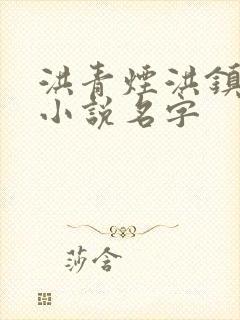 洪青煙洪鎮
小說名字
莎含